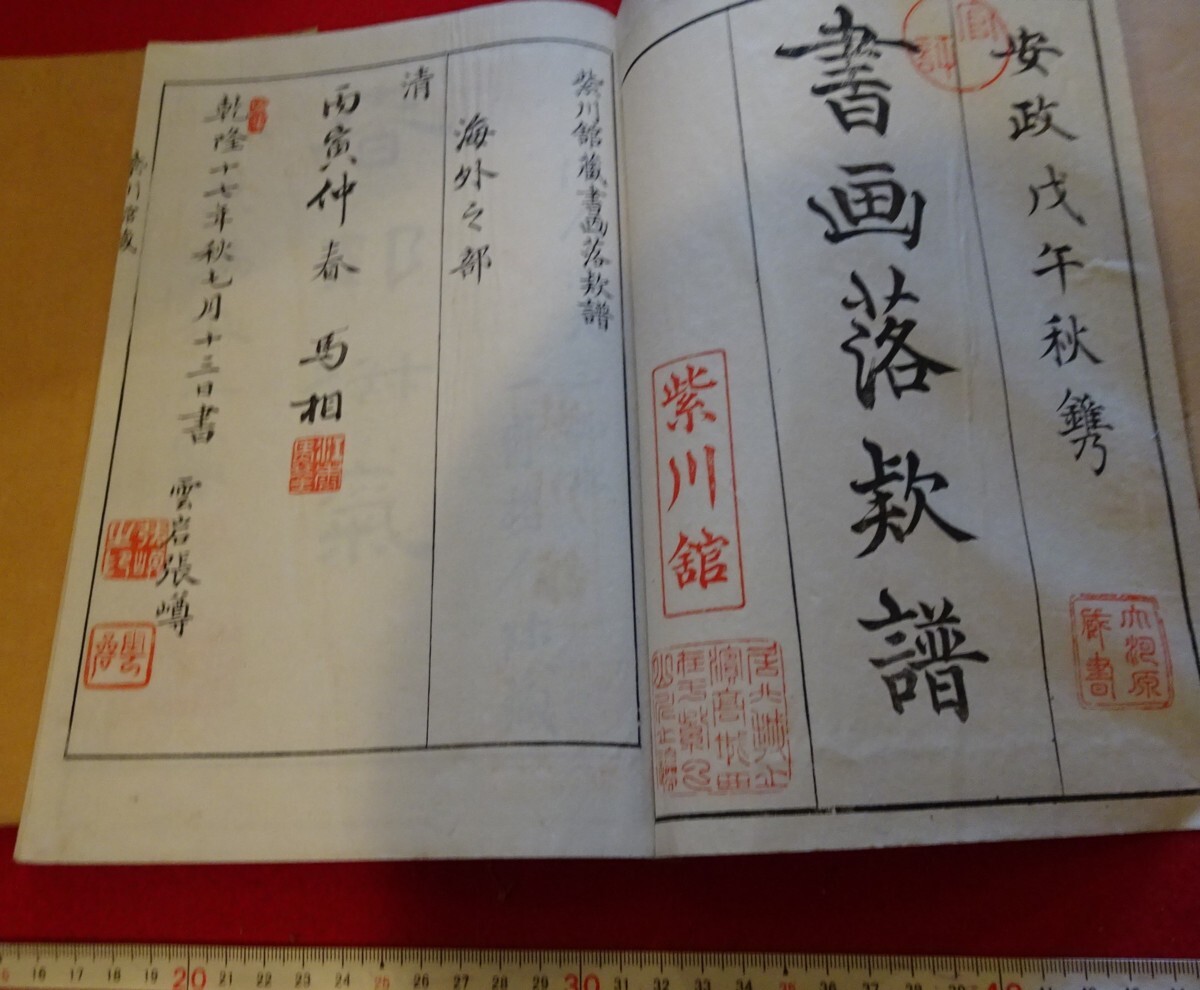 安政戊午秋鐫
官許
書画落款譜
紫川館
大沼原
蔵書
紫川舘蔵書画落款譜
海外之部
清
丙寅仲春 馬相
乾隆十七年秋七月十三日書 雲岩張㠂
16 17 18 19 20 21 22 23 24 25 26 27 28 29 30 31 32 33 34 35 36 37 38 39 40